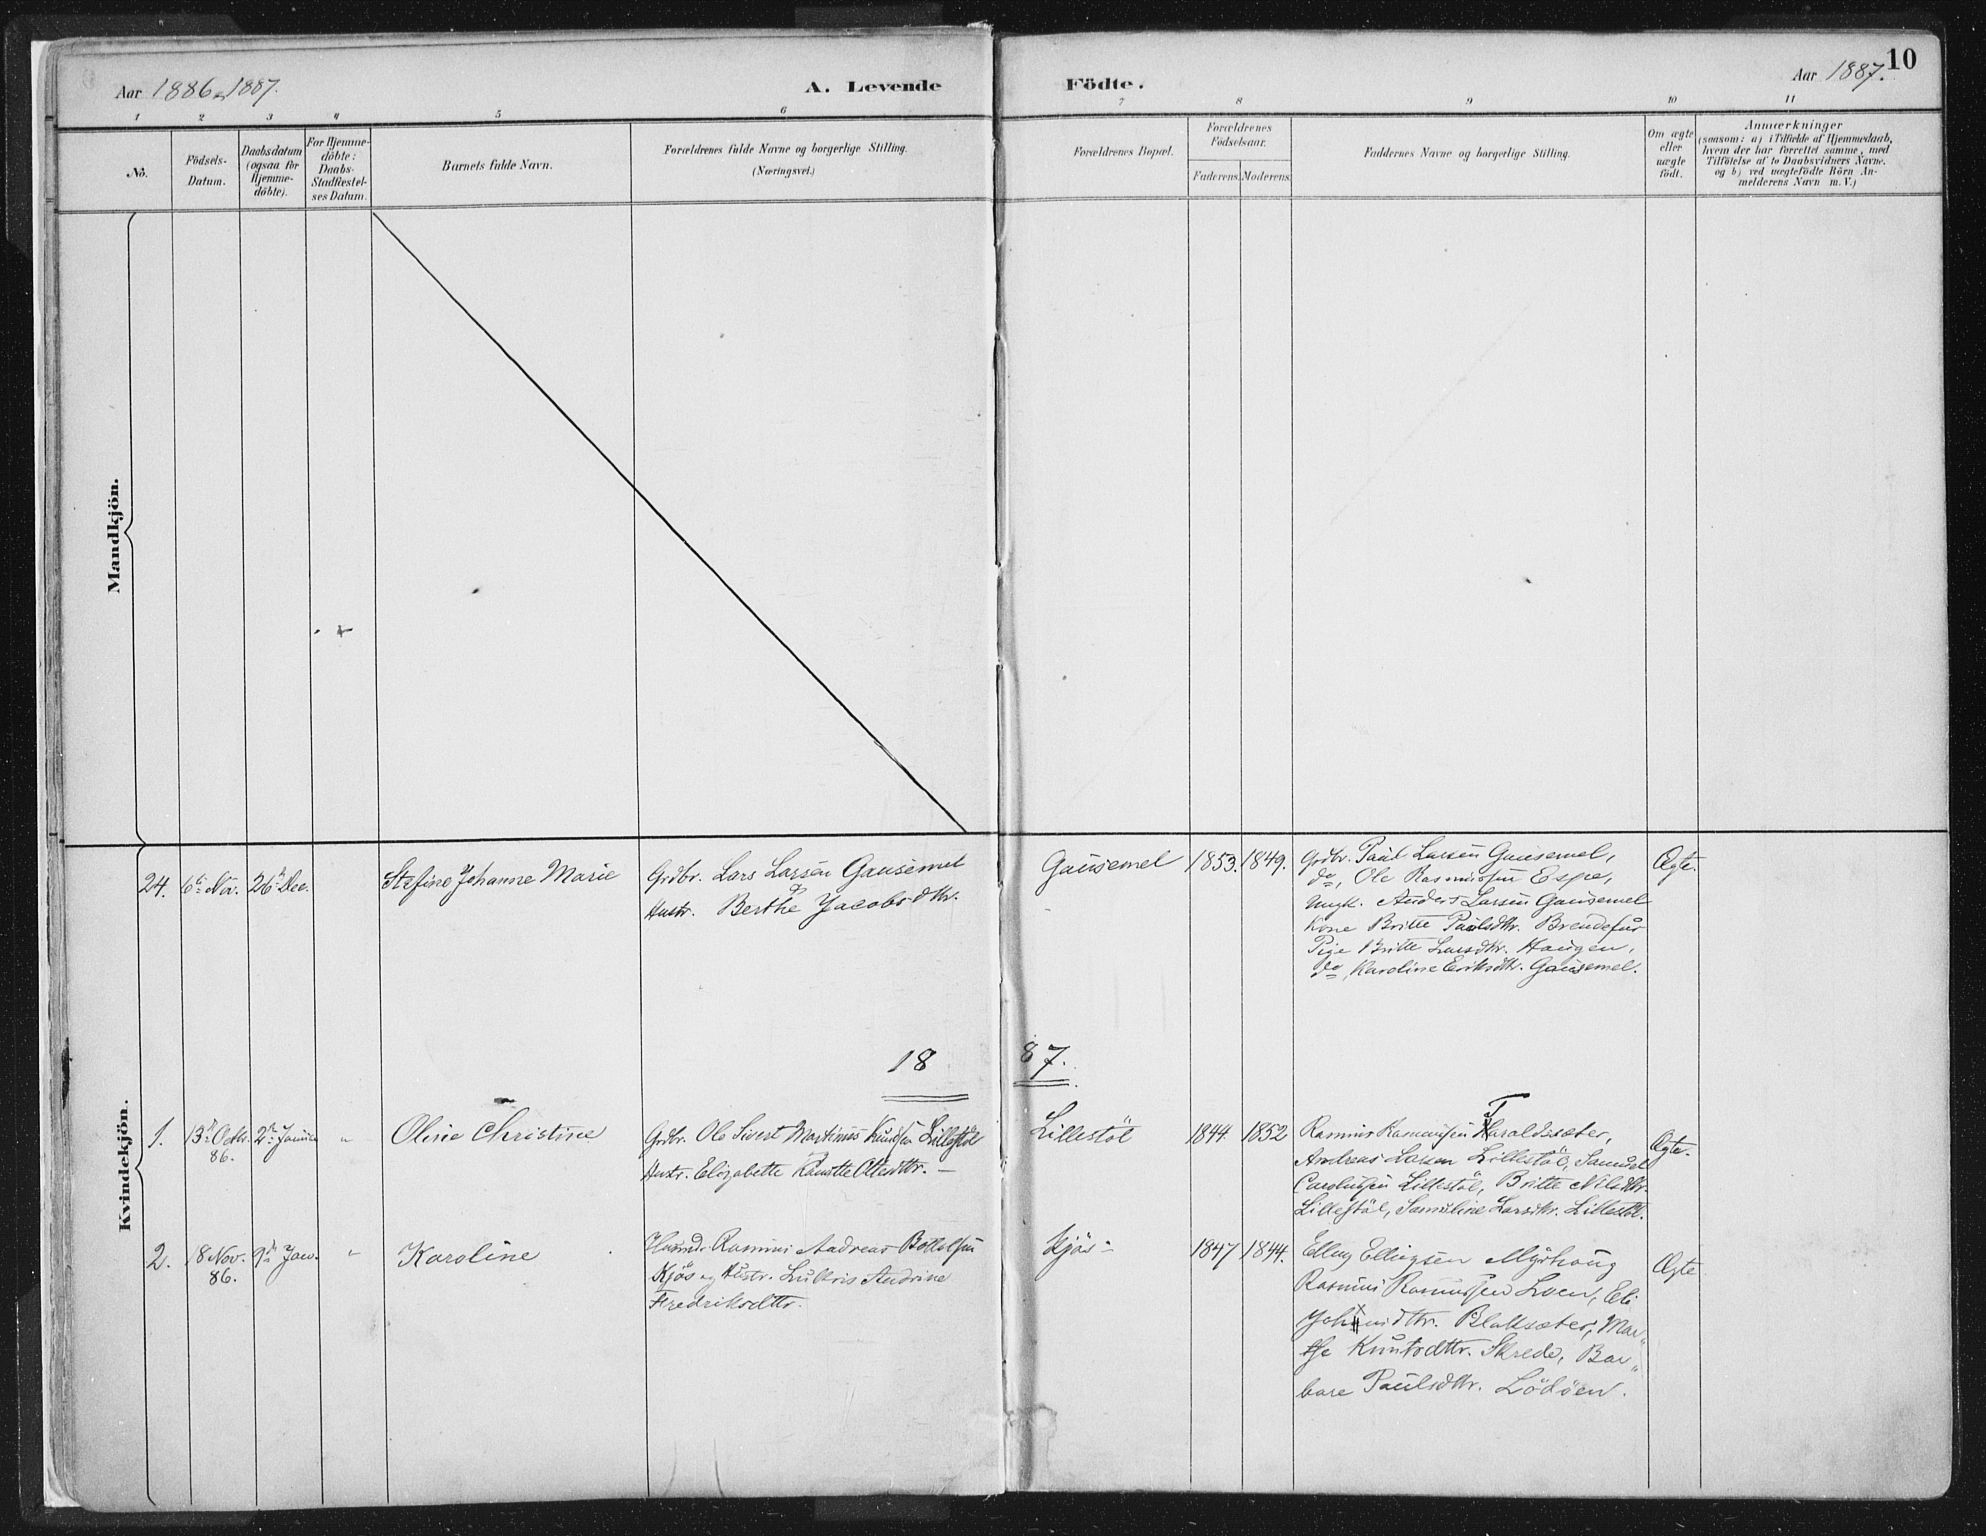 10
Aar 1886-1887.
A. Levende
Födte.
Aar 1887.
1 2 3 4 5 6 7 8 9 10 11
No.
Födsels-
Datum.
Daabsdatum
(ogsaa for
Hjemme-
döbte).
For Hjemme-
döbte:
Daabs-
Stadfæstel-
ses Datum.
Barnets fulde Navn.
Forældrenes fulde Navne og borgerlige Stilling.
(Næringsvei.)
Forældrenes Bopæl.
Forældrenes
Födselsaar.
Faderens. Moderens.
Faddernes Navne og borgerlige Stilling.
Om ægte
eller
uægte
födt.
Anmærkninger
(saasom: a) i Tilfælde af Hjemmedaab,
hvem der har forrettet samme, med
Tilföielse af to Daabsvidners Navne.
og b) ved uægtefödte Börn An-
melderens Navn m. V.)
Mandkjön.
Kvindekjön.
24.
6te Nov.
26de Dec.
Stefine Johanne Marie
Grdbr. Lars Larsen Gausemel
Hustr. Berthe P Jacobsdttr.
Gausemel
1853.
1849.
Grdbr. Paul Larsen Gausemel,
do, Ole Rasmussen Espe,
Ungk. Anders Larsen Gausemel
Kone Britte Paulsdttr. Brendefur
Pige Britte Larsdttr. Haugen,
do, Karoline Eriksdttr. Gausemel.
Ægte.
1887.
1.
13de Octbr.
86.
2den Januar
"
Oline Christine
Grdbr. Ole Sivert Martinus Knudsen Lillestöl
Hustr. Elizabette Ottesdttr. —
Lillestöl
1844.
1852
Rasmus Rasmussen Tharaldsæter,
Andreas Larsen Lillestöl, Samuel
Carolussen Lillestöl, Britte Nilsdttr.
Lillestöl, Samuline Larsdttr. Lillestöl.
Ægte.
2.
18 Nov.
86.
9de Jan.
"
Karoline
Husmd. Rasmus Andreas Bottolfsen
Kjös og Hustr. Andrine
Fredriksdttr.
Kjös
1847
1844.
Elling Ellingsen Myrhoug
Rasmus Rasmussen Loen, Eli
Blaksæter, Mar-
the Knutsdttr. Skrede, Bar-
bare Paulsdttr. Lödöen.
Ægte